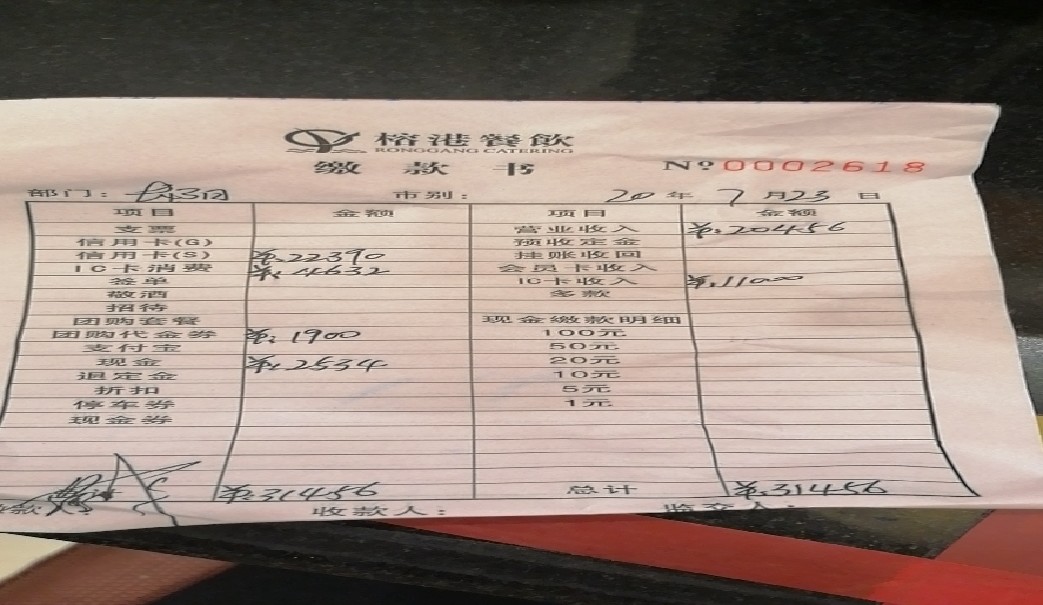 榕港餐飲
RONGGANG CATERING
缴款书 Nº 0002618
部门： 市别： 20 年 7 月 23 日
项目 金额 项目 金额
支票 营业收入 ¥:20456
信用卡(G) 预收定金
信用卡(S) ¥:22390 挂账收回
IC卡消费 ¥:4632 会员卡收入
签单 IC卡收入 ¥:11000
敬酒 多款
招待
团购套餐 现金缴款明细
团购代金券 ¥:1900 100元
支付宝 50元
现金 ¥:2534 20元
退定金 10元
折扣 5元
停车券 1元
现金券
¥:31456 总计 ¥:31456
收款人： 监交人：